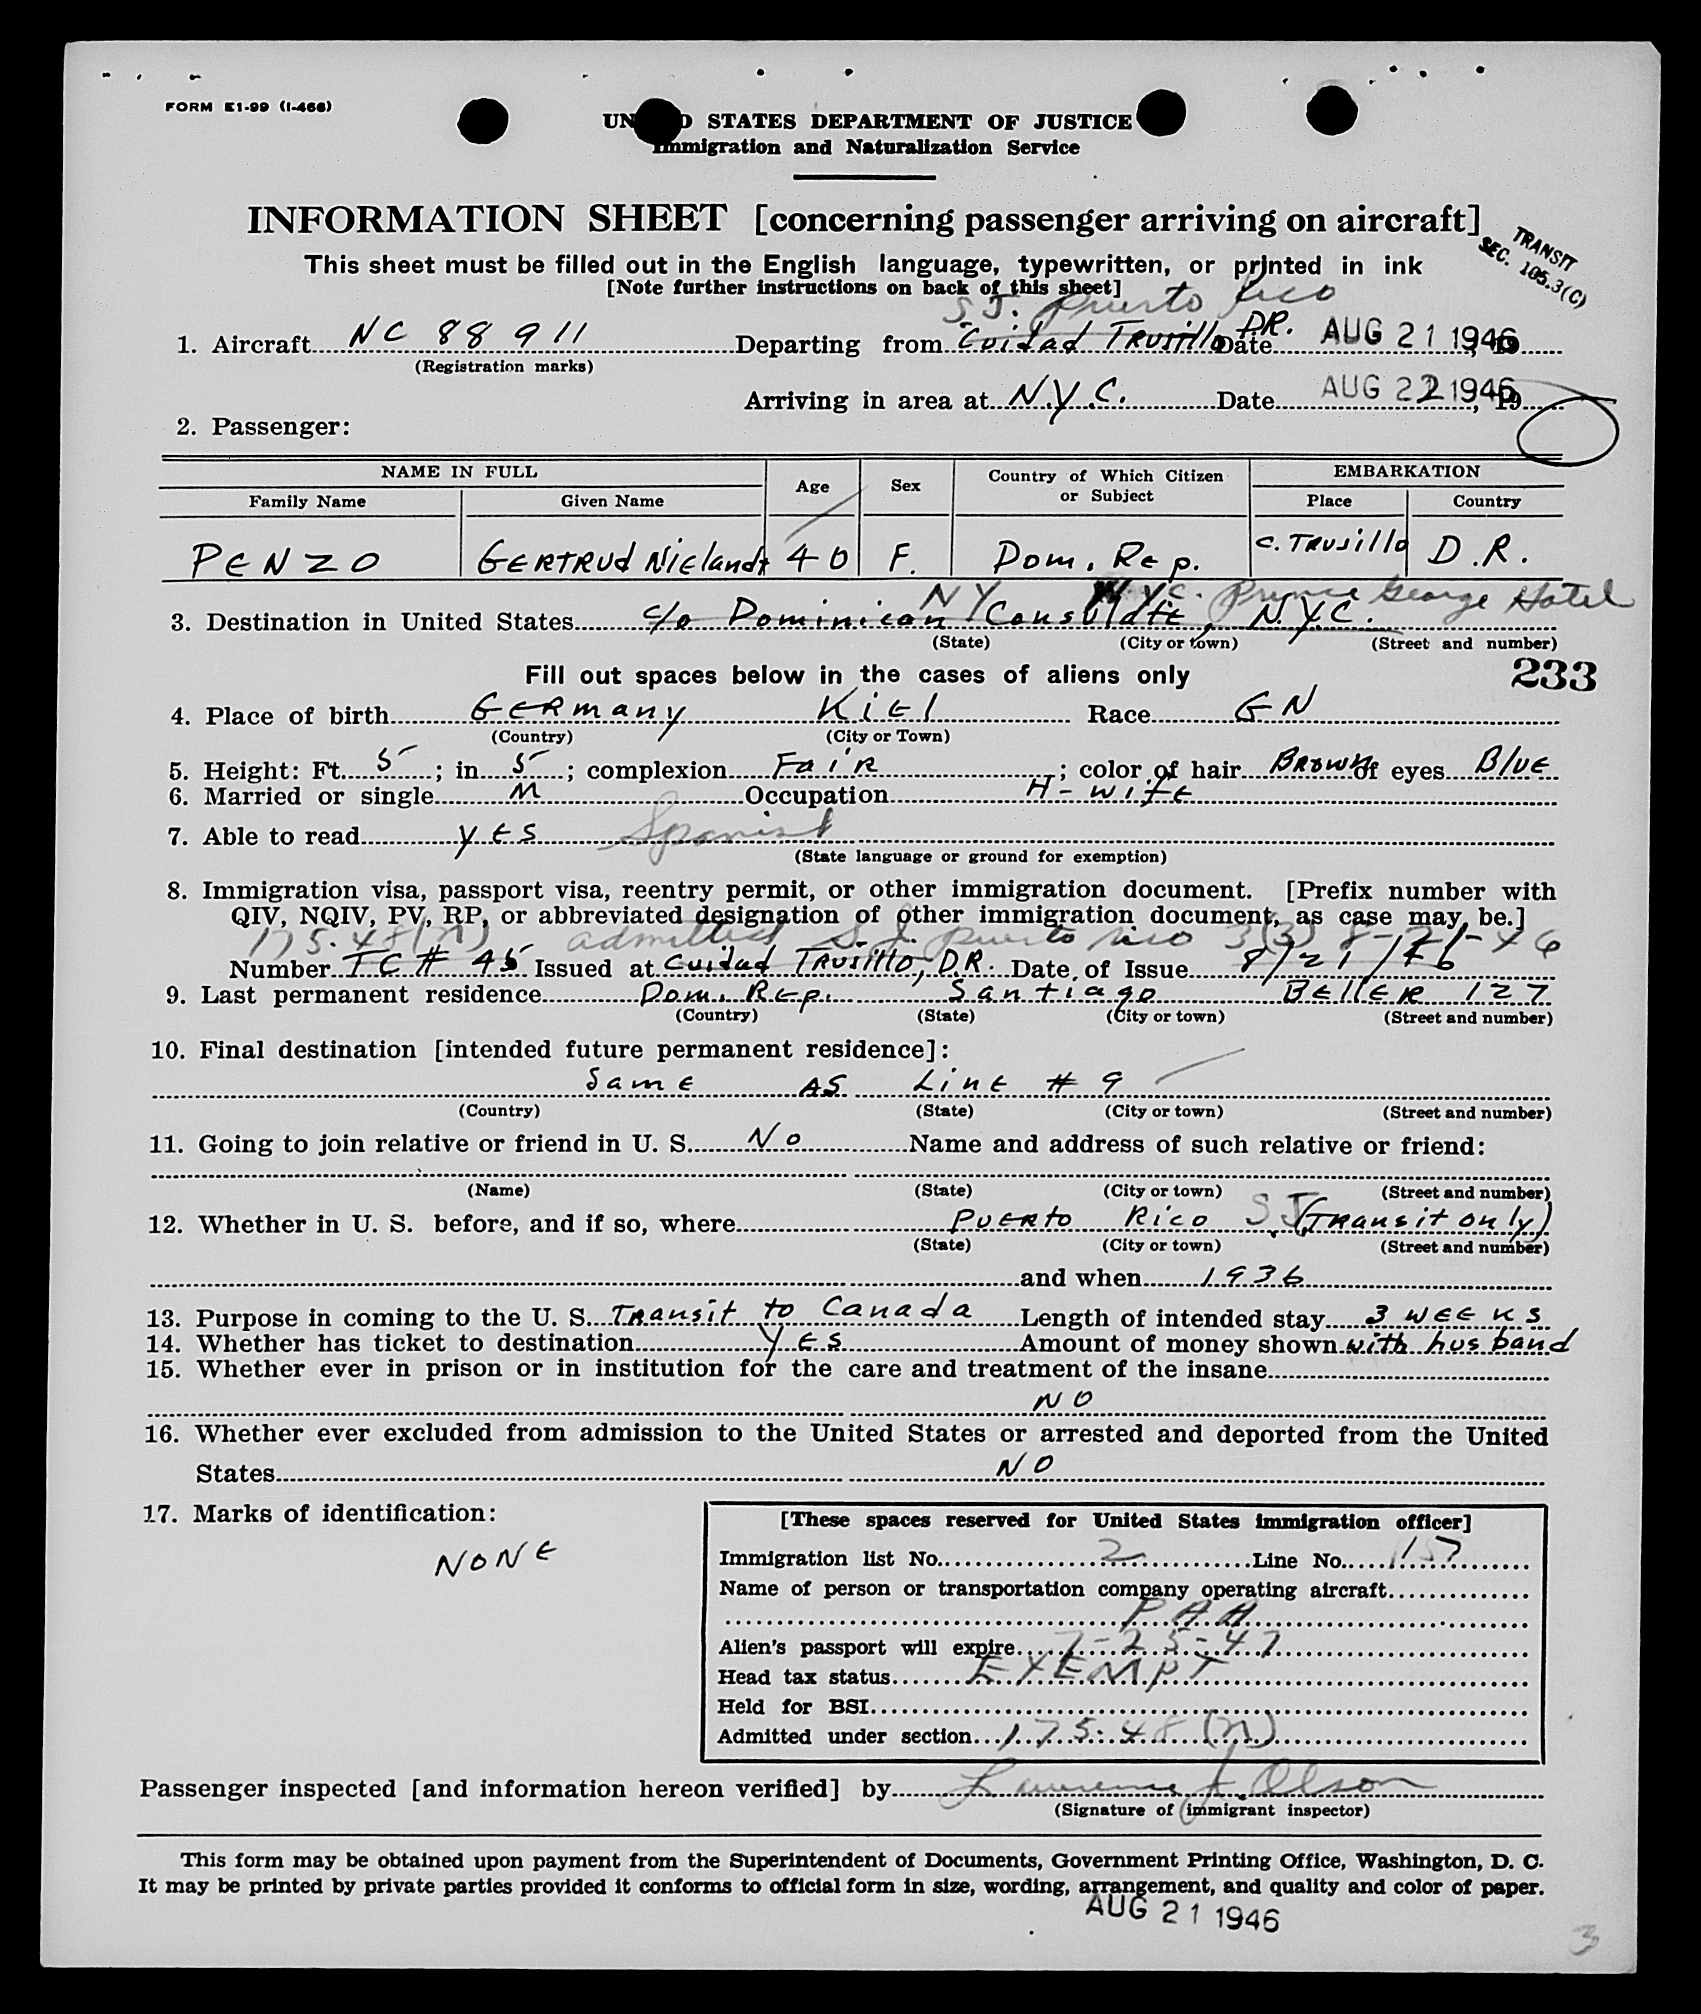 FORM E1-99 (I-466)
UNITED STATES DEPARTMENT OF JUSTICE
Immigration and Naturalization Service
INFORMATION SHEET [concerning passenger arriving on aircraft]
TRANSIT
SEC. 105.3(C)
This sheet must be filled out in the English language, typewritten, or printed in ink
[Note further instructions on back of this sheet]
S.J. Puerto Rico
1. Aircraft NC 88911 Departing from Cuidad Trusillo D.R. Date AUG 21 1946, 19
(Registration marks)
Arriving in area at N.Y.C. Date AUG 22 1946, 19
2. Passenger:
NAME IN FULL Age Sex Country of Which Citizen or Subject EMBARKATION
Family Name Given Name Place Country
PENZO GERTRUd NiElandt 40 F. Dom. Rep. C. TRUsillo D.R.
NY N.Y.C. Prince George Hotel
3. Destination in United States c/o Dominican Consulate, N.Y.C.
(State) (City or town) (Street and number)
Fill out spaces below in the cases of aliens only 233
4. Place of birth GERmany KiEl Race GN
(Country) (City or Town)
5. Height: Ft. 5; in 5; complexion FaiR; color of hair BROWN of eyes BlUE
6. Married or single M Occupation H-wifE
7. Able to read yES Spanish
(State language or ground for exemption)
8. Immigration visa, passport visa, reentry permit, or other immigration document. [Prefix number with
QIV, NQIV, PV, RP, or abbreviated designation of other immigration document, as case may be.]
175.48(n) admitted S.J. Puerto Rico 3(3) 8-21-46
Number TC # 45 Issued at Cuidad TRUsillo, D.R. Date of Issue 8/21/46
9. Last permanent residence Dom. REp. Santiago BEllER 127
(Country) (State) (City or town) (Street and number)
10. Final destination [intended future permanent residence]:
SamE AS LinE # 9
(Country) (State) (City or town) (Street and number)
11. Going to join relative or friend in U. S. No Name and address of such relative or friend:
(Name) (State) (City or town) (Street and number)
12. Whether in U. S. before, and if so, where PUERto Rico S.J. (TRansit only)
(State) (City or town) (Street and number)
and when 1936
13. Purpose in coming to the U. S. TRansit to Canada Length of intended stay 3 WEEKS
14. Whether has ticket to destination YES Amount of money shown with husband
15. Whether ever in prison or in institution for the care and treatment of the insane
NO
16. Whether ever excluded from admission to the United States or arrested and deported from the United
States NO
17. Marks of identification:
NONE
[These spaces reserved for United States immigration officer]
Immigration list No. 2 Line No. 15
Name of person or transportation company operating aircraft
PAA
Alien's passport will expire 7-25-47
Head tax status EXEMPT
Held for BSI
Admitted under section 175.48(n)
Passenger inspected [and information hereon verified] by Lawrence J. Olson
(Signature of immigrant inspector)
This form may be obtained upon payment from the Superintendent of Documents, Government Printing Office, Washington, D. C.
It may be printed by private parties provided it conforms to official form in size, wording, arrangement, and quality and color of paper.
AUG 21 1946
3